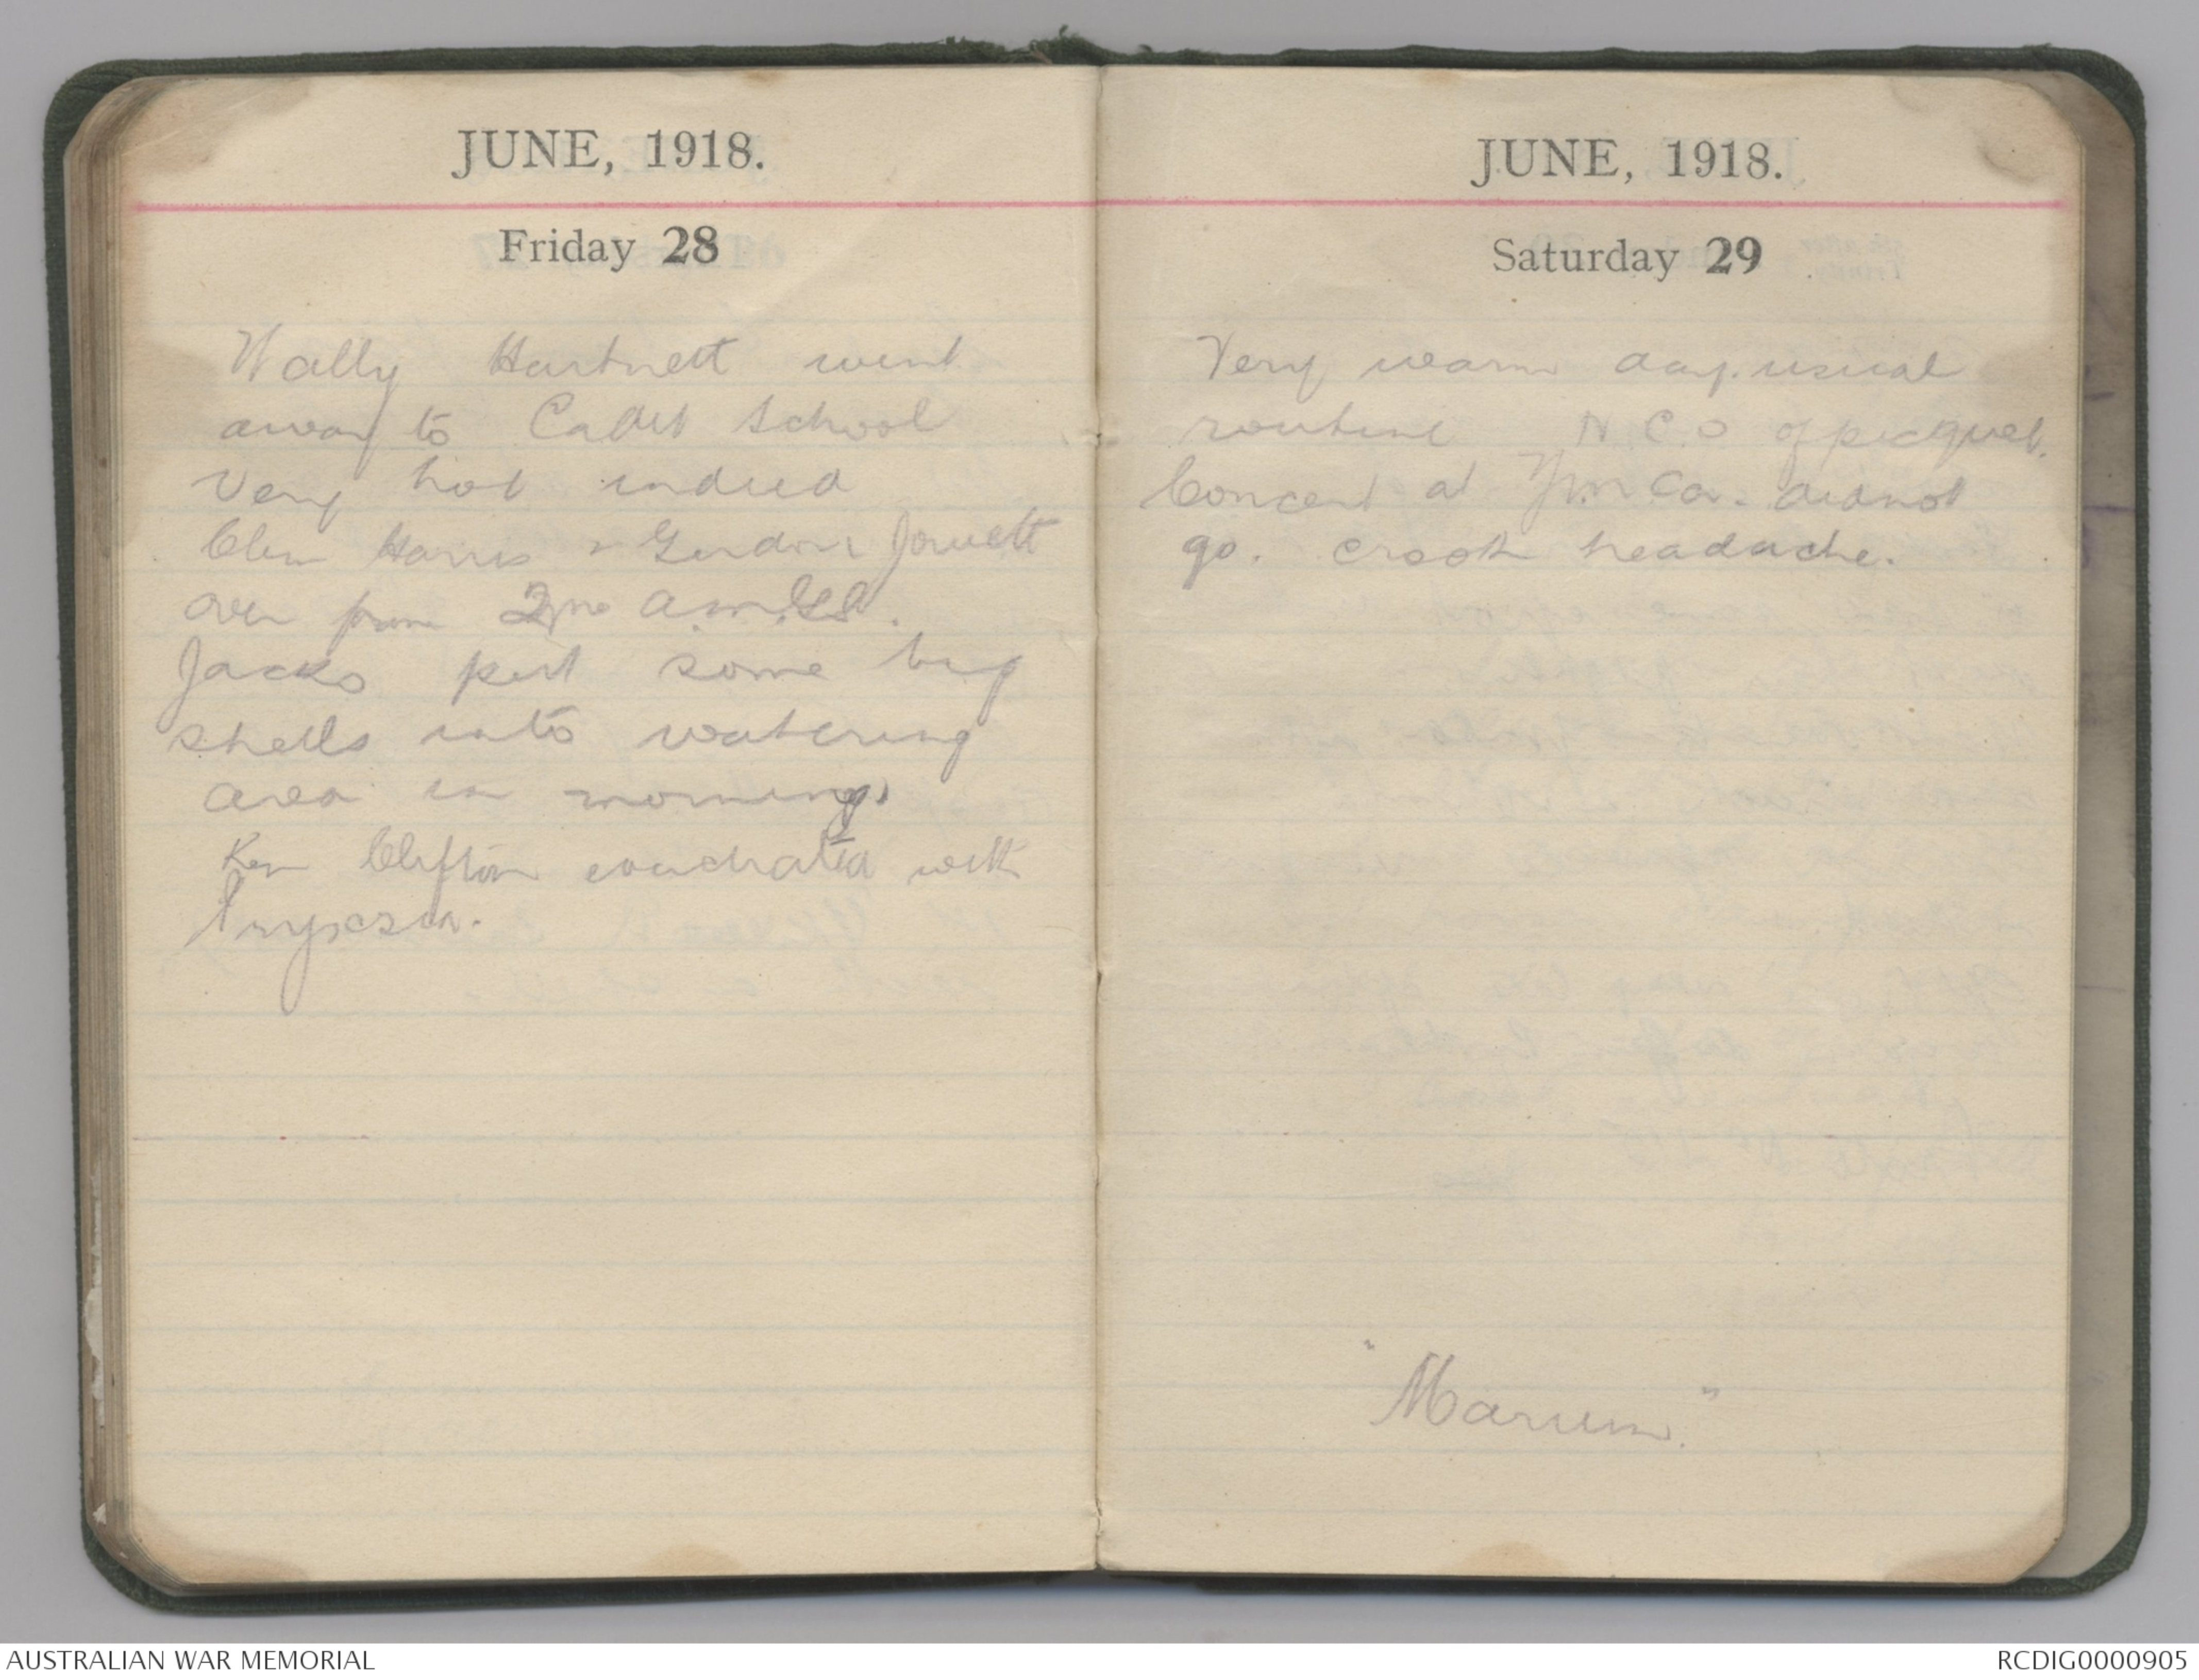 JUNE, 1918.
Friday 28
Wally Hartnett went
away to Cadet School
Very hot indeed
Clem Harris & Gordon Jowett
over from 2nd A.M.G.S.
Jacko put some big
shells into watering
area in morning.
Ken Clifton evacuated with
JUNE, 1918.
Saturday 29
Very warm day. usual
routine N.C.O of picquet.
Concert at Y.M.C.A. did not
go. crook headache.
AUSTRALIAN WAR MEMORIAL
RCDIG0000905